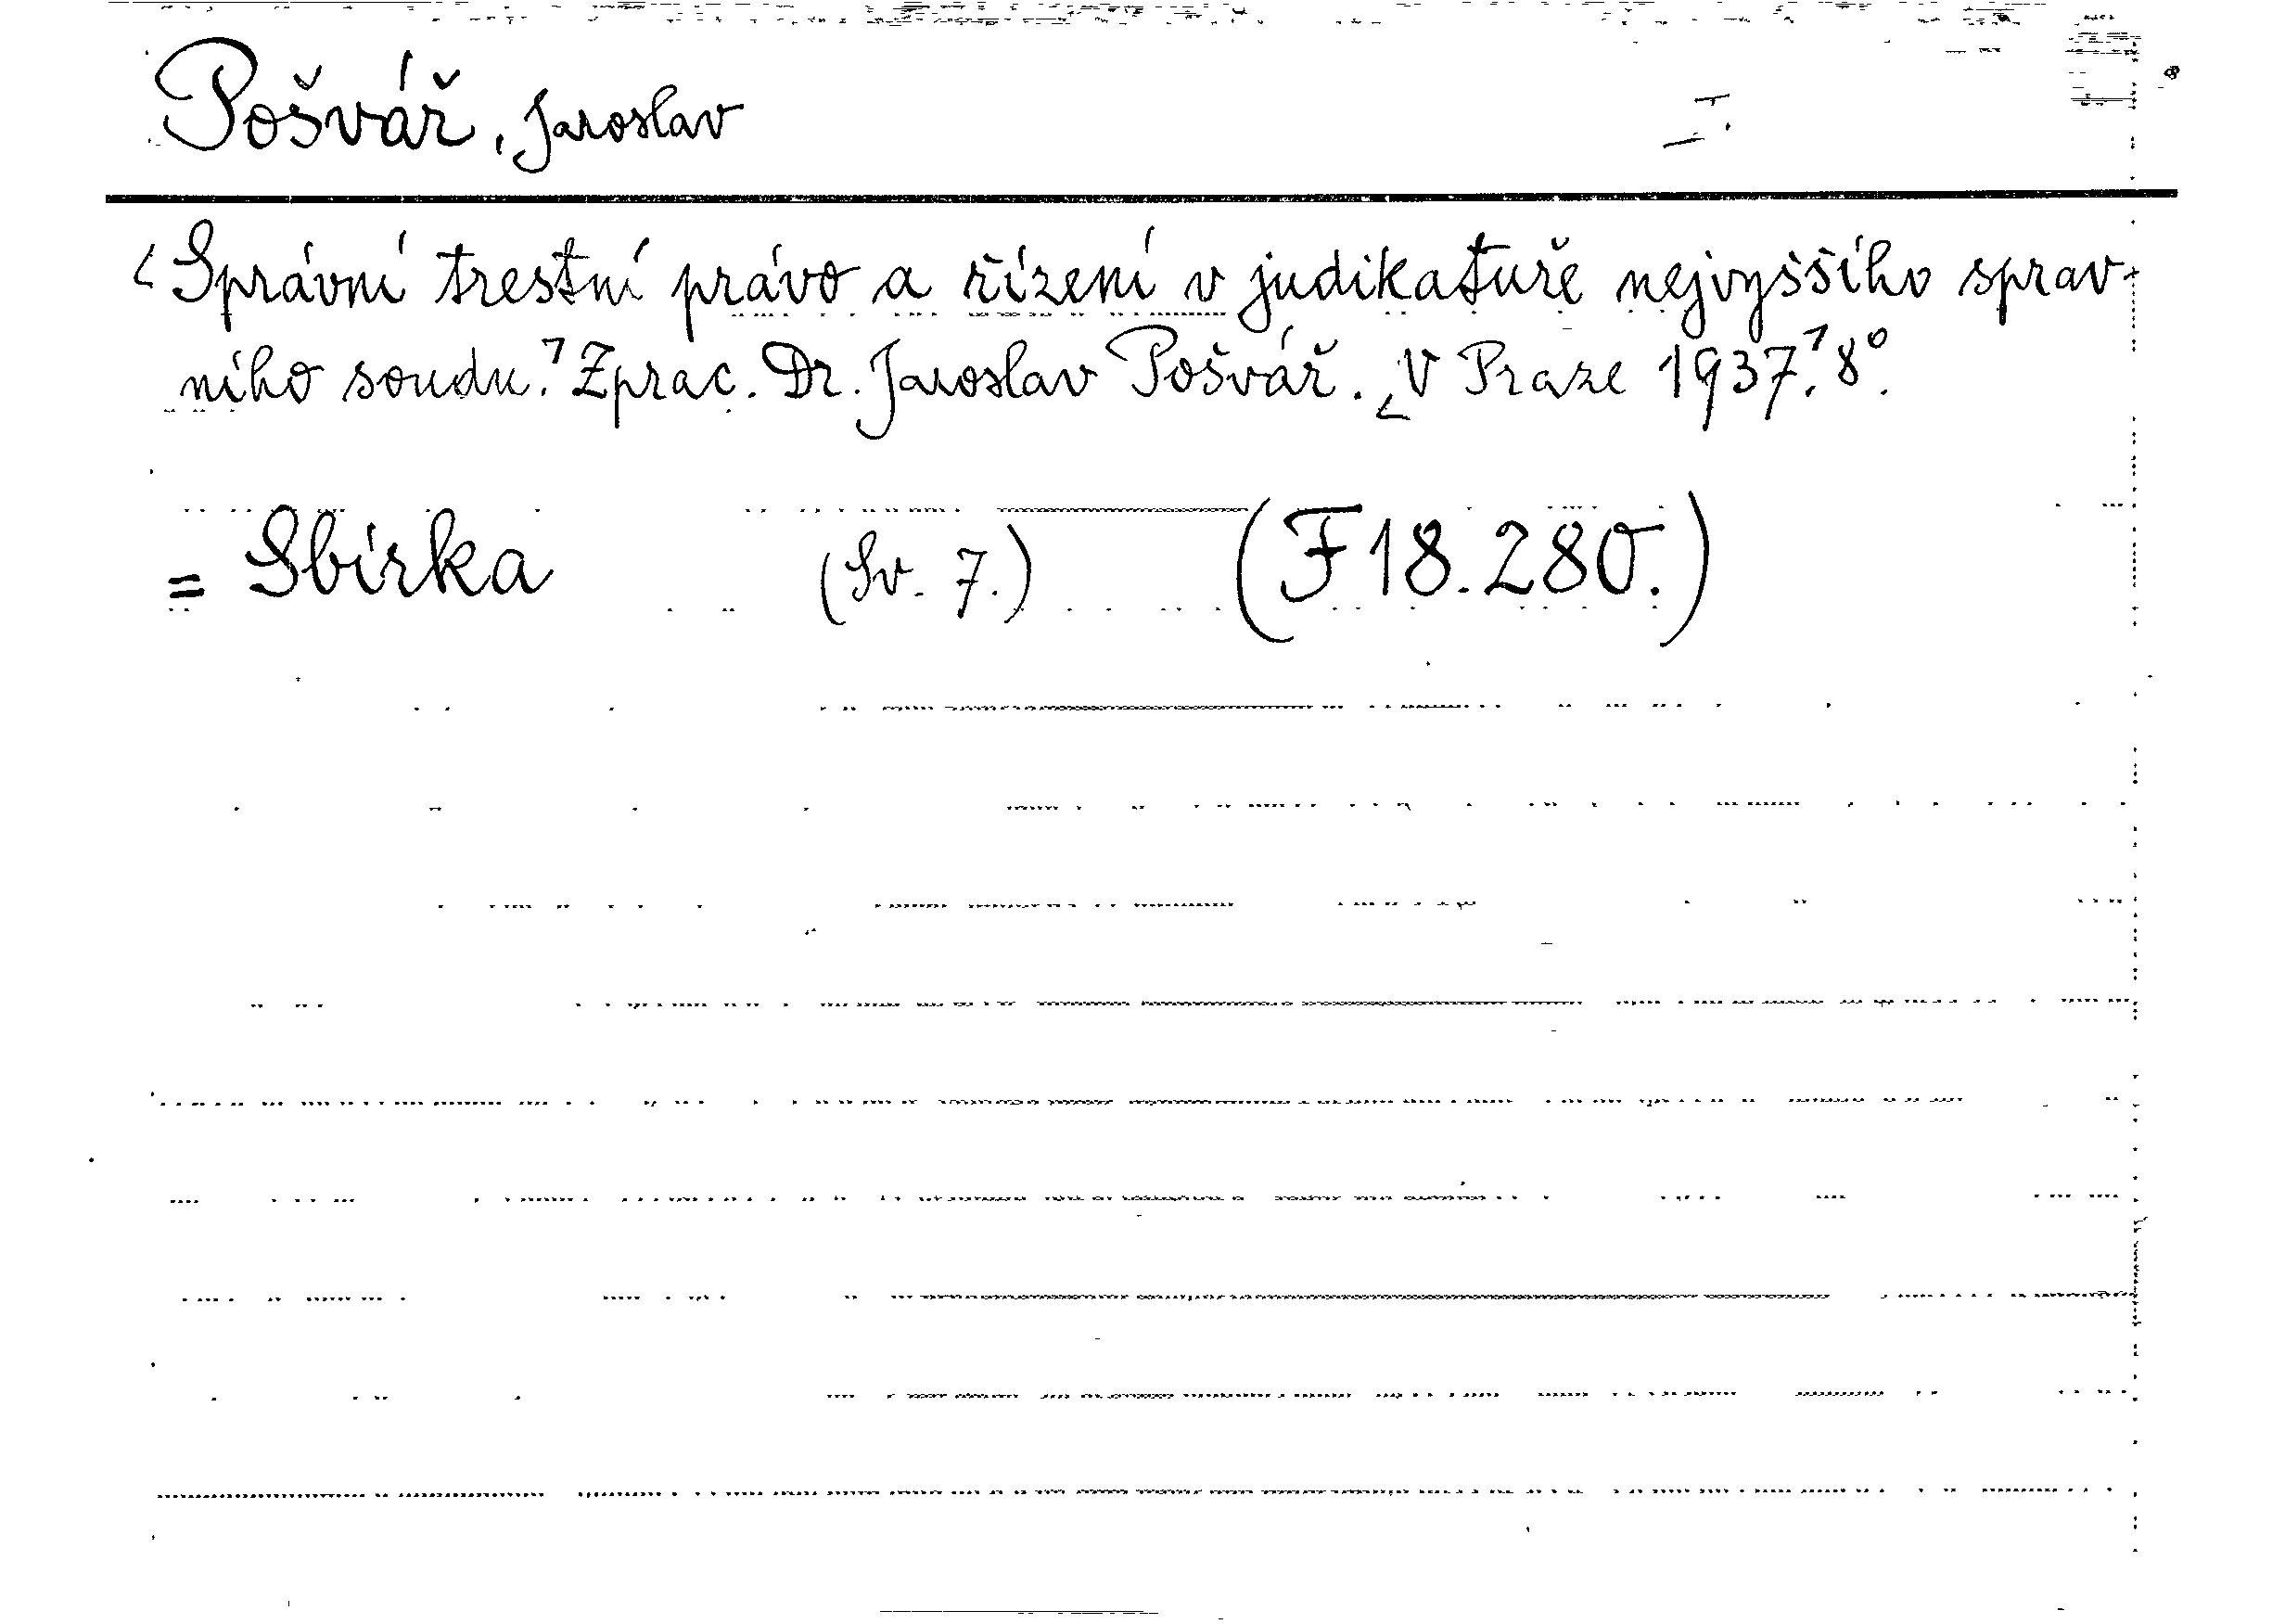 Pošvář, Jaroslav
<Správní trestní právo a řízení v judikatuře nejvyššího správ-
ního soudu.> Zprac. Dr. Jaroslav Pošvář. <V Praze 1937.> 8°.
= Sbírka (Sv. 7.) (F 18.280.)